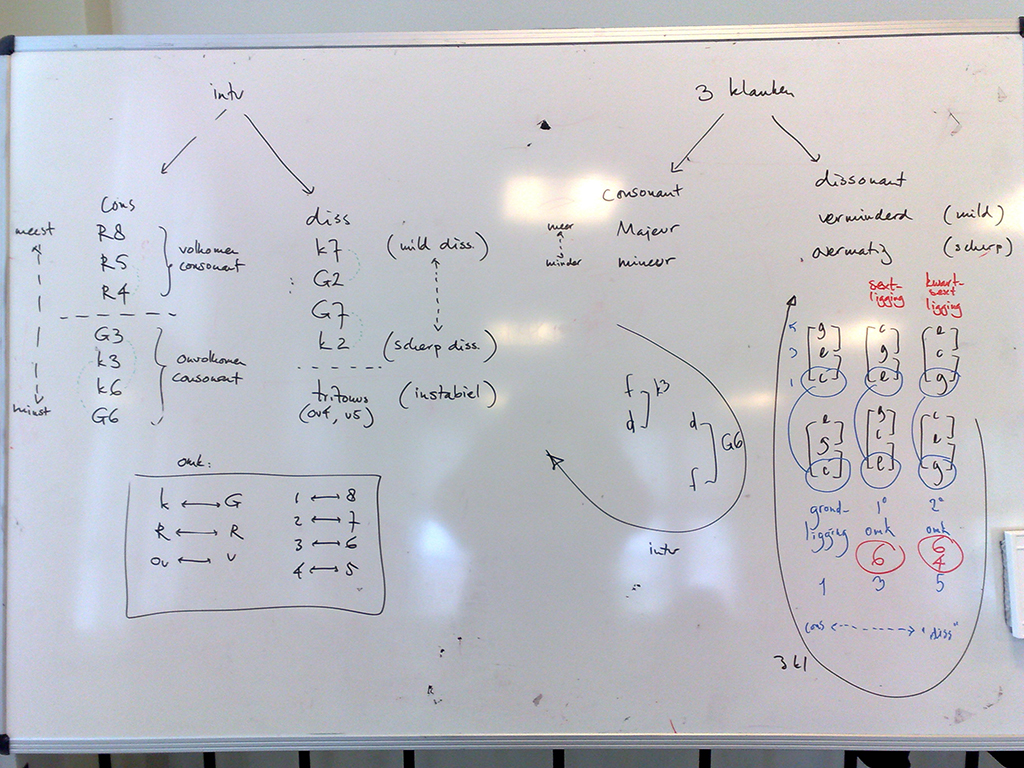 intv
Cons
meest
R8
R5
R4
volkomen
consonant
G3
k3
k6
G6
minst
onvolkomen
consonant
diss
k7
G2
G7
k2
tritonus
(ov4, v5)
(mild diss.)
(scherp diss.)
(instabiel)
omk:
k ↔ G
R ↔ R
ov ↔ v
1 ↔ 8
2 ↔ 7
3 ↔ 6
4 ↔ 5
3 klanken
Consonant
meer
Majeur
minder
mineur
dissonant
verminderd (mild)
overmatig (scherp)
f
d
k3
d
f
G6
intv
sext-
ligging
kwart-
sext
ligging
5 g c e
3 e g c
1 c e g
e g c
g c e
c e g
grond-
ligging
1e
omk
2e
omk
6
6
4
1 3 5
cons ↔ "diss"
3 kl